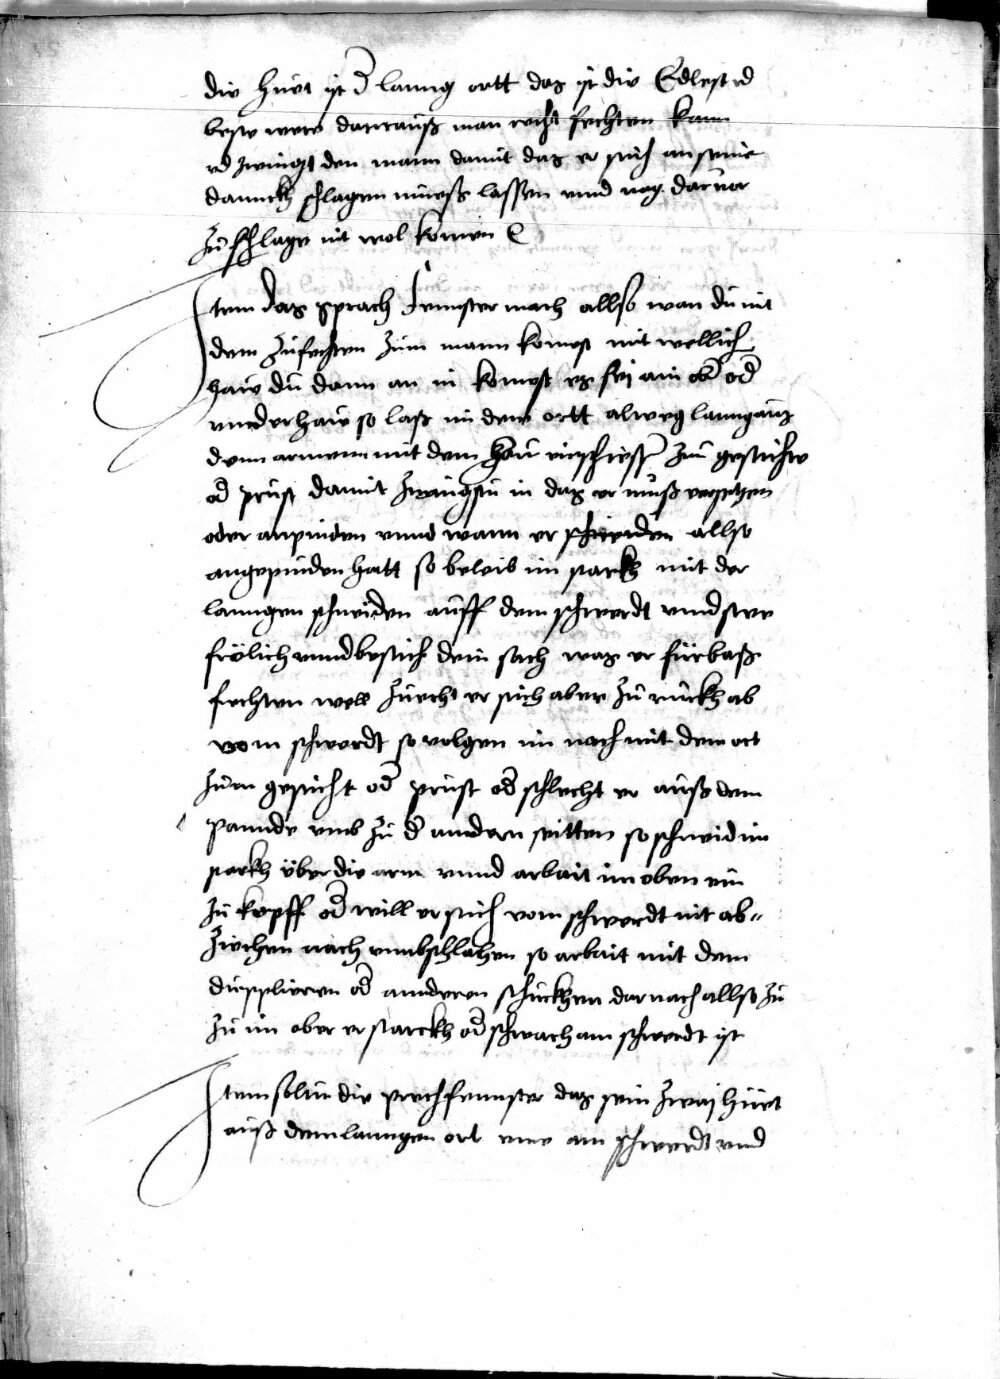 die hüet ist d lanng ortt das ist die Edlest vd
beste were darauß man recht fechten kann
vd zwingt den mann damit das er sich an seinen
danckh schlagen müesß lassen vnnd mag darvor
zü schlage nit wol komen
Item das sprach fennster mach allso wan dü mit
dem zufechten zum mann komst mit wellich
haw dü dann an in komest es sej ain ob od
vnnderhaw so laß im denn ortt alweg lanng auß
denn armenn mit dem haw einschiesß zum gesichte
od prüst damit zwingstü in das er müß versetzen
oder anpinden vnnd wann er schneiden allso
angepünden hatt so beleib im starckh mit der
lanngen schneiden auff dem schwerdt vnnd stee
frölich vnnd besich dein sach was er fürbaß
fechten well Zücht er sich aber zü rückh ab
vom schwerdt so volgen im nach mit dem ort
zü en gesicht od prüst od schlecht er auß dem
Pannde vmb zü d andern seitten so schneid im
starkh über die arm vnnd arbait im oben ein
zü kopff od will er sich vom schwerdt nit ab=
ziehen nach vmbschlahen so arbait mit dem
düpplieren od annderen stückhen darnach allso zü
zü im aber er starckh od schwach am schwerdt ist
Item sol im die sprechfennster das sein zwaj hüet
auß dem lanngen ort eine am schwerdt vnd